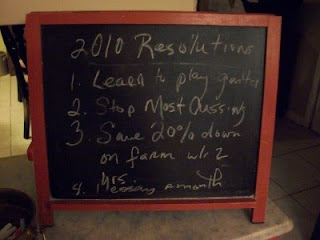 2010 Resolutions
1. Learn to play guitar
2. Stop Most Cussing
3. Save 20% down
on farm w/i 2
yrs.
4. 1 essay a month